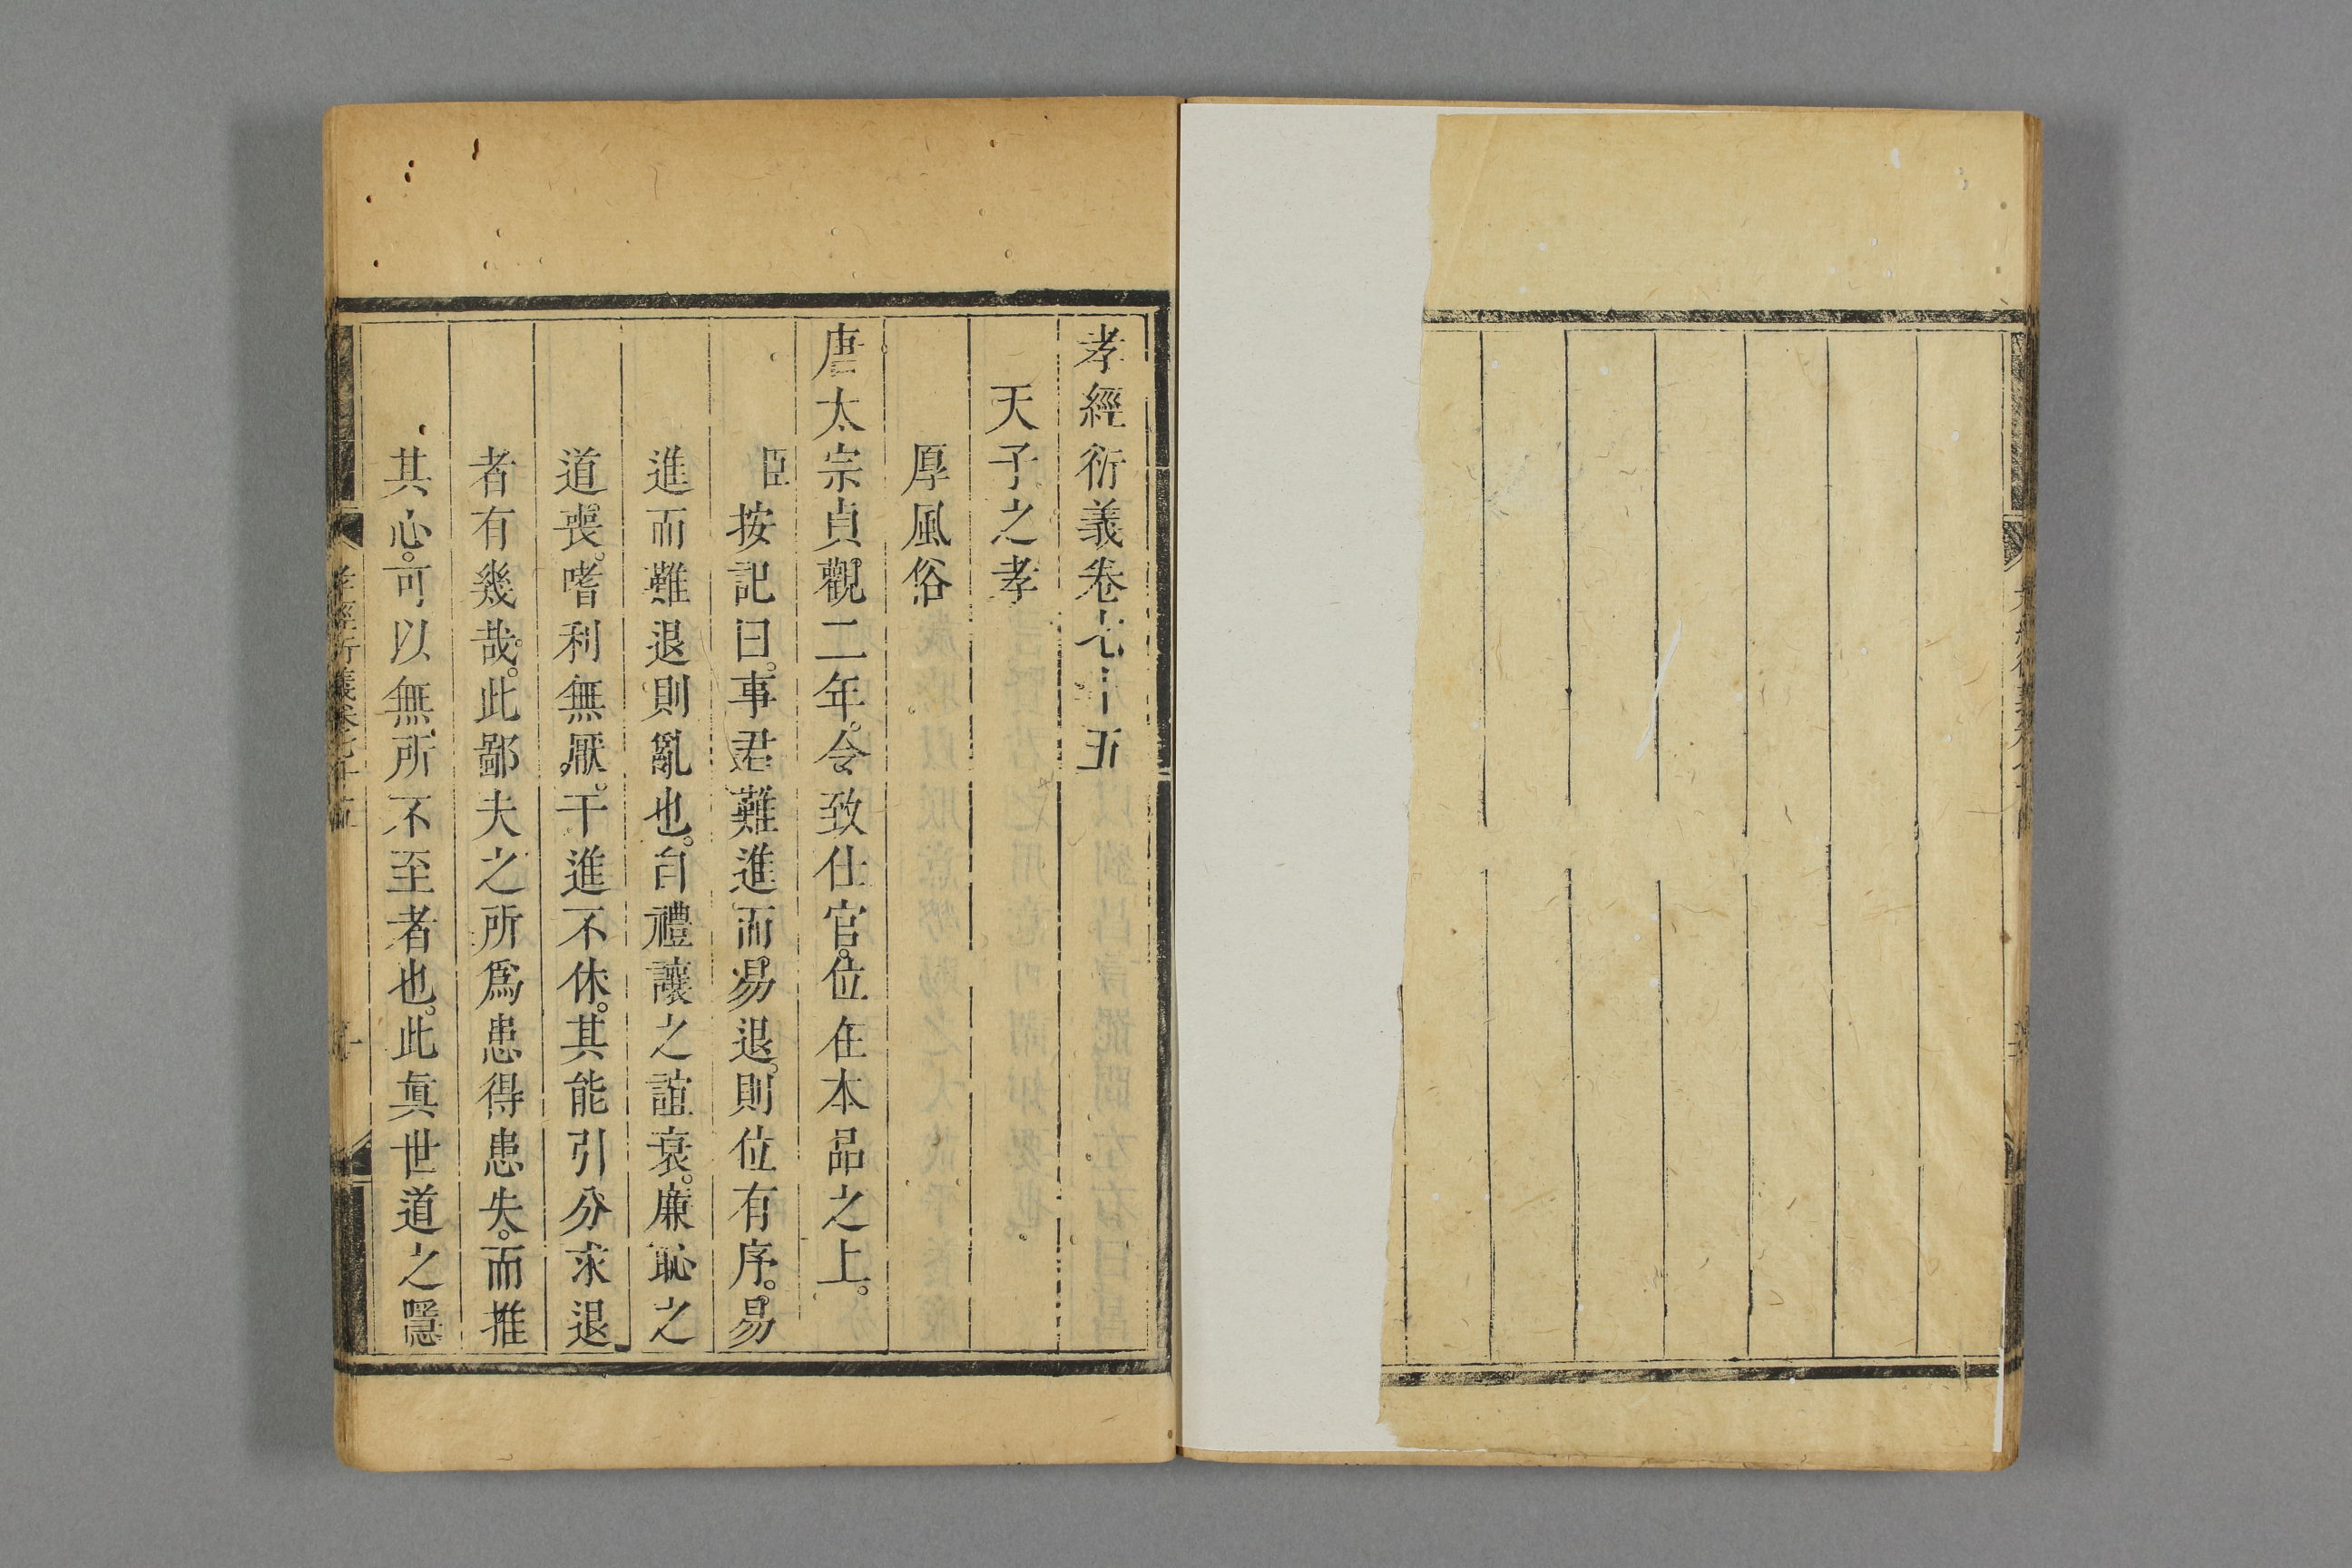 孝經衍義卷七十五
天子之孝
厚風俗
唐太宗貞觀二年。令致仕官。位在本品之上。
臣按記曰。事君難進而易退。則位有序。易
進而難退則亂也。自禮讓之誼衰。廉恥之
道喪。嗜利無厭。干進不休。其能引分求退
者有幾哉。此鄙夫之所爲患得患失。而推
其心。可以無所不至者也。此眞世道之隱
孝經衍義卷七十五
一